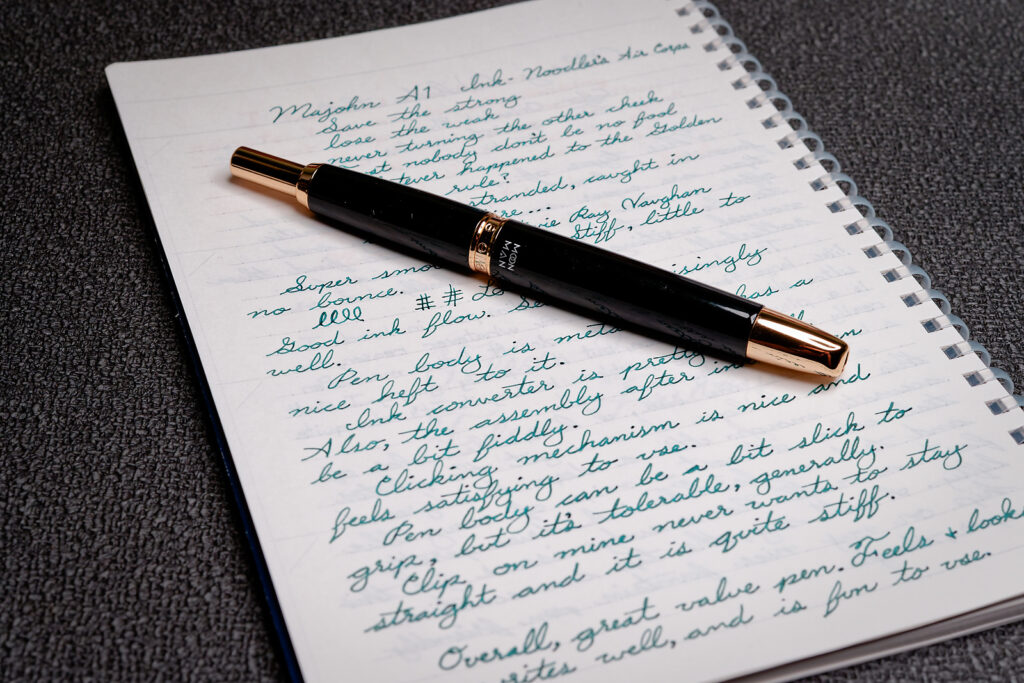 Majohn A1 Ink- Noodler's Air Corps
Save the strong
lose the weak
never turning the other cheek
nobody don't be no fool
happened to the Golden
rule?
stranded, caught in
Ray Vaughan
Stiff, little to
Super
no bounce.
llll ##
Good ink flow.
well.
Pen body is has a
nice heft to it.
Ink converter is pretty
Also, the assembly after
be a bit fiddly.
Clicking mechanism is nice and
feels satisfying to use.
Pen body can be a bit slick to
grip, but it's tolerable, generally.
Clip on mine never wants to stay
straight and it is quite stiff.
Overall, great value pen. Feels + look
well, and is fun to use.
MOON
MAN